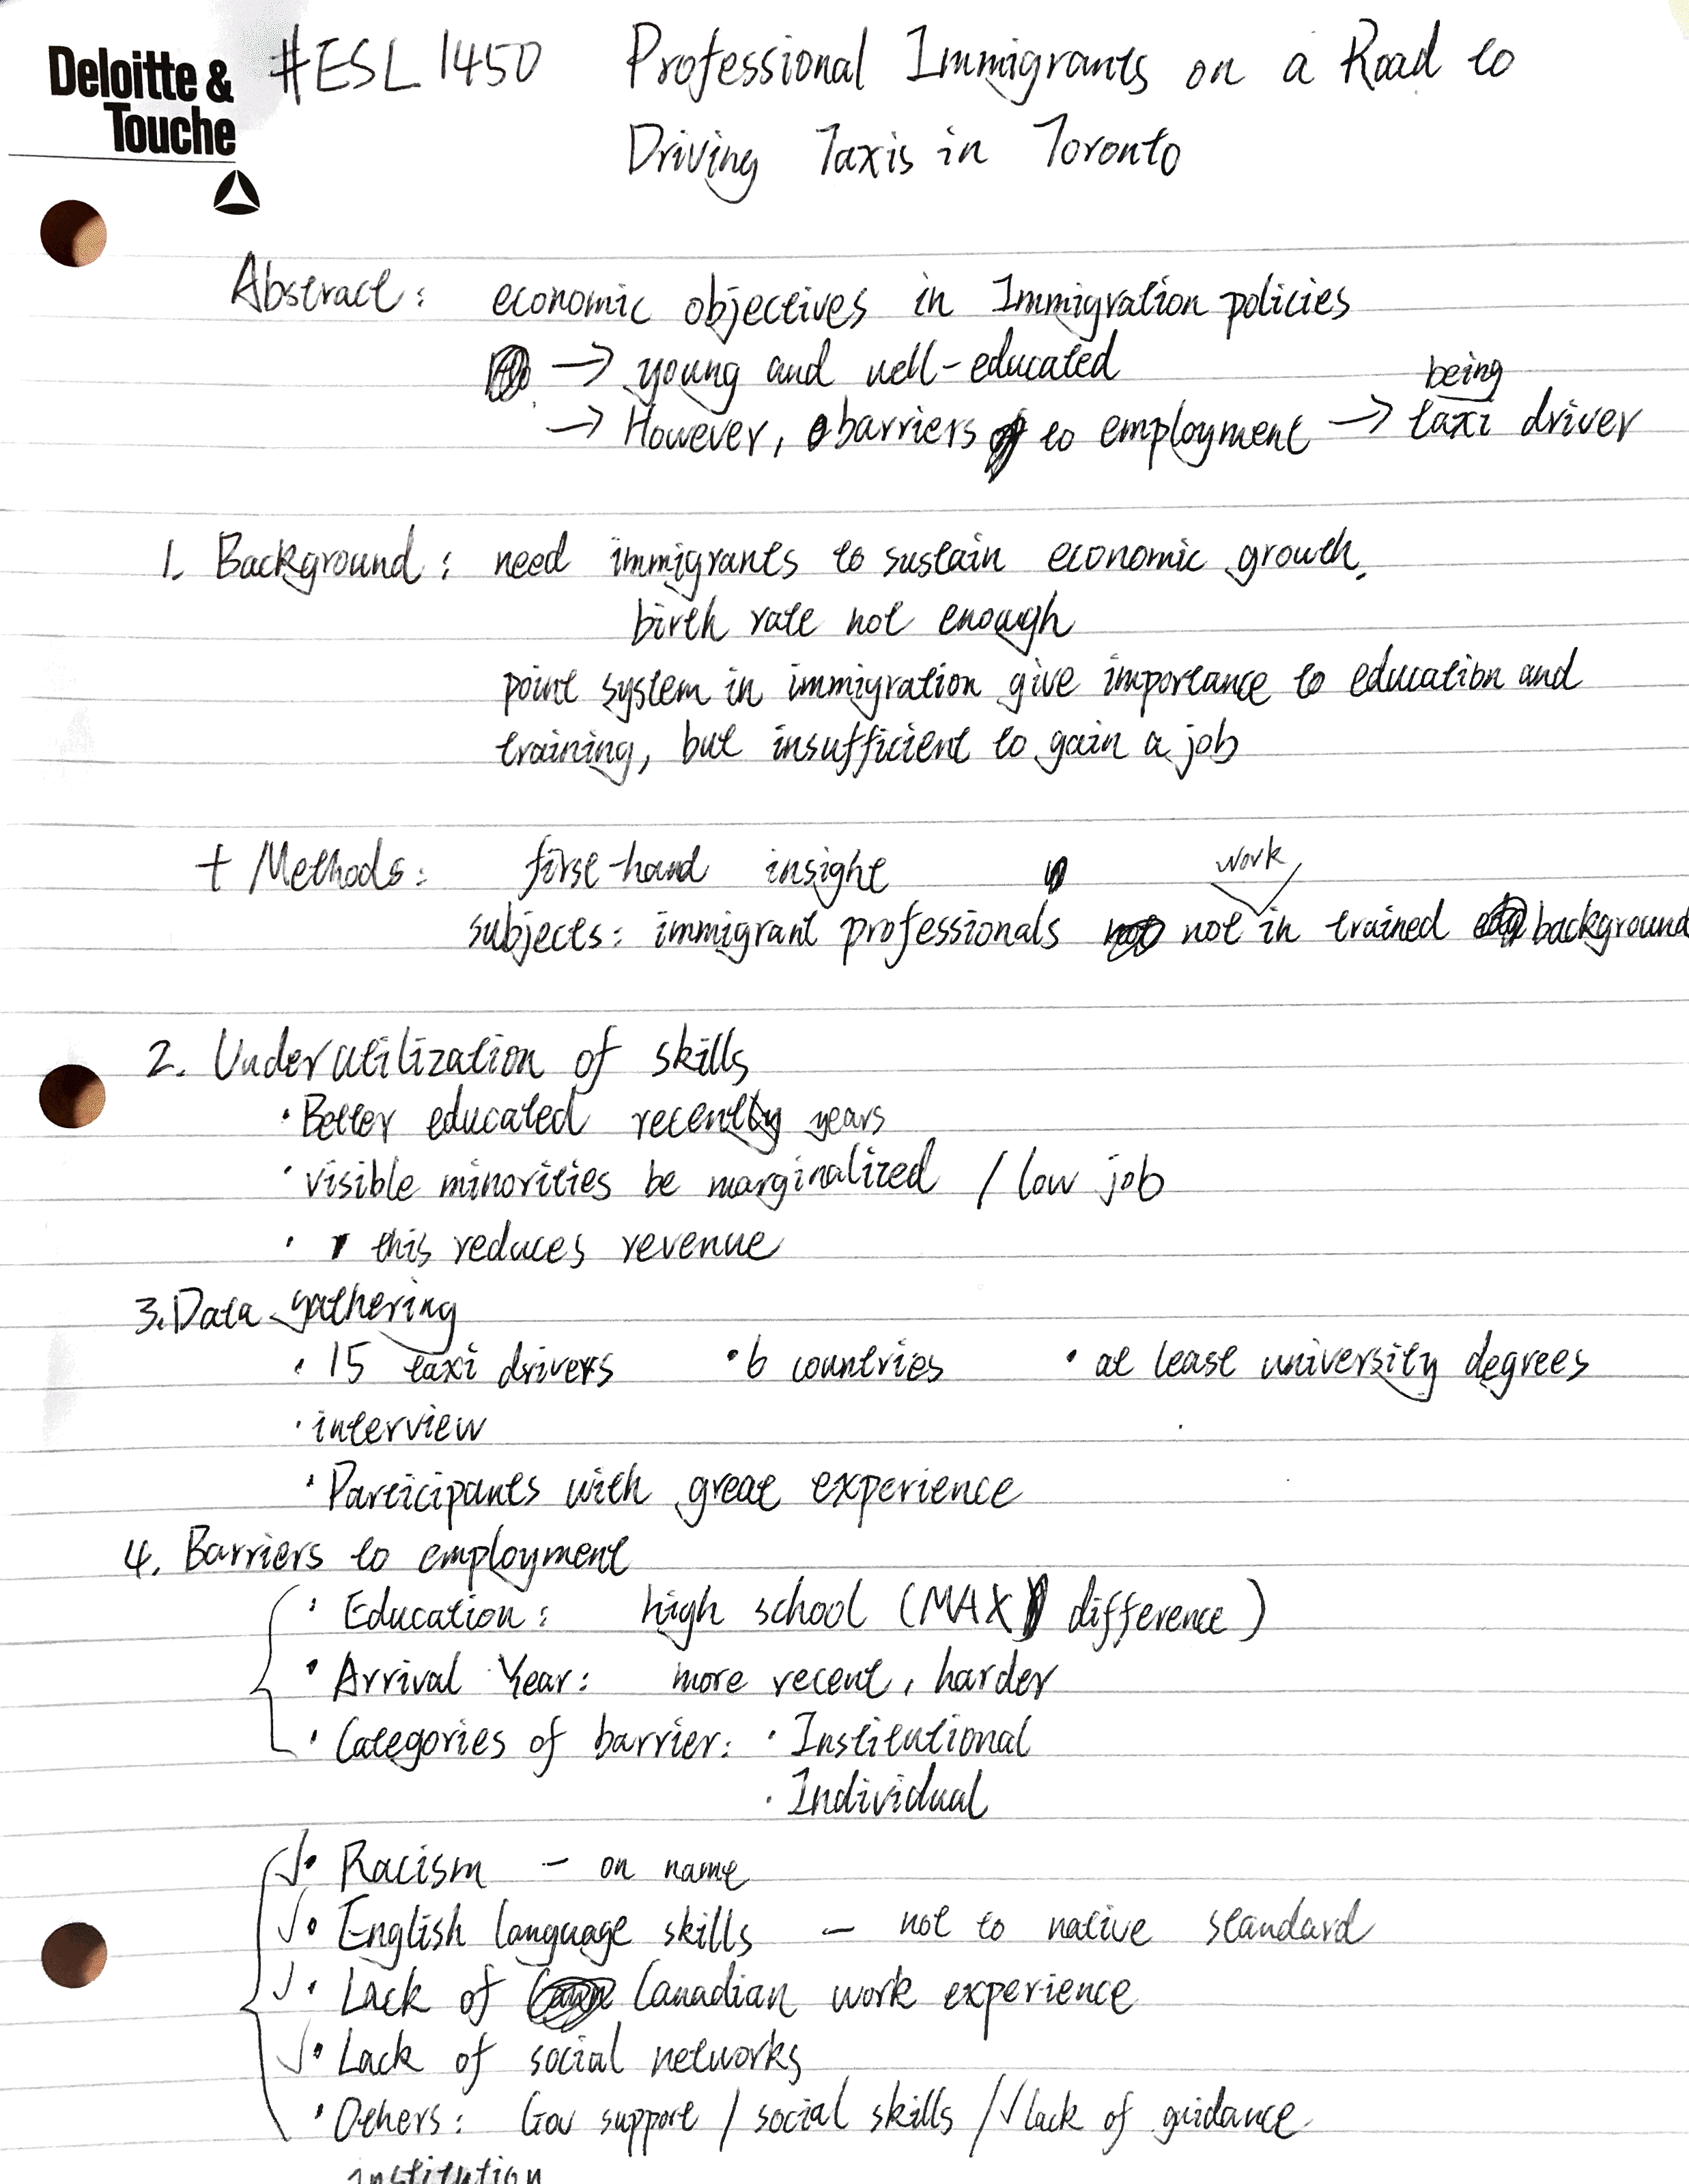 Deloitte &
Touche
#ESL1450 Professional Immigrants on a Road to
Driving Taxis in Toronto
Abstract: economic objectives in Immigration policies
→ young and well-educated
being
→ However, barriers to employment → taxi driver
1. Background: need immigrants to sustain economic growth.
birth rate not enough
point system in immigration give importance to education and
training, but insufficient to gain a job
+ Methods: first-hand insight
work
subjects: immigrant professionals not in trained background
2. Underutilization of skills
· Better educated recently years
· visible minorities be marginalized / low job
· this reduces revenue
3. Data gathering
· 15 taxi drivers · 6 countries · at least university degrees
· interview
· Participants with great experience
4. Barriers to employment
· Education: high school (MAX difference)
· Arrival Year: more recent, harder
· Categories of barrier: · Institutional
· Individual
√· Racism - on name
√· English language skills - not to native standard
√· Lack of Canadian work experience
√· Lack of social networks
· Others: Gov support / social skills / √ lack of guidance
institution